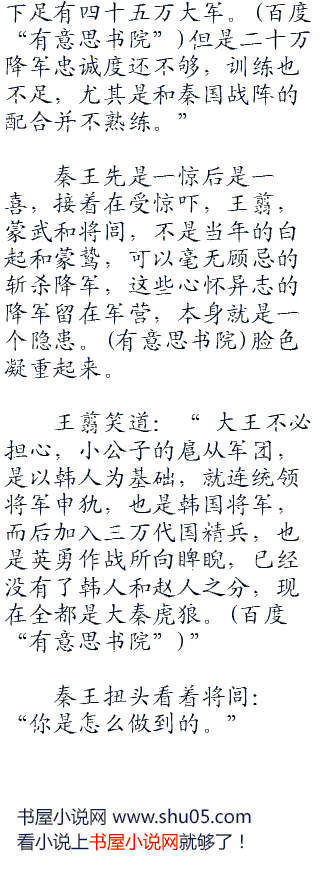 下足有四十五万大军。(百度
“有意思书院”)但是二十万
降军忠诚度还不够，训练也
不足，尤其是和秦国战阵的
配合并不熟练。”
秦王先是一惊后是一
喜，接着在受惊吓，王翦，
蒙武和将闾，不是当年的白
起和蒙骜，可以毫无顾忌的
斩杀降军，这些心怀异志的
降军留在军营，本身就是一
个隐患。(有意思书院)脸色
凝重起来。
王翦笑道：“ 大王不必
担心，小公子的扈从军团，
是以韩人为基础，就连统领
将军申犰，也是韩国将军，
而后加入三万代国精兵，也
是英勇作战所向睥睨，已经
没有了韩人和赵人之分，现
在全都是大秦虎狼。(百度
“有意思书院”)”
秦王扭头看着将闾：
“你是怎么做到的。”
书屋小说网 www.shu05.com
看小说上书屋小说网就够了！